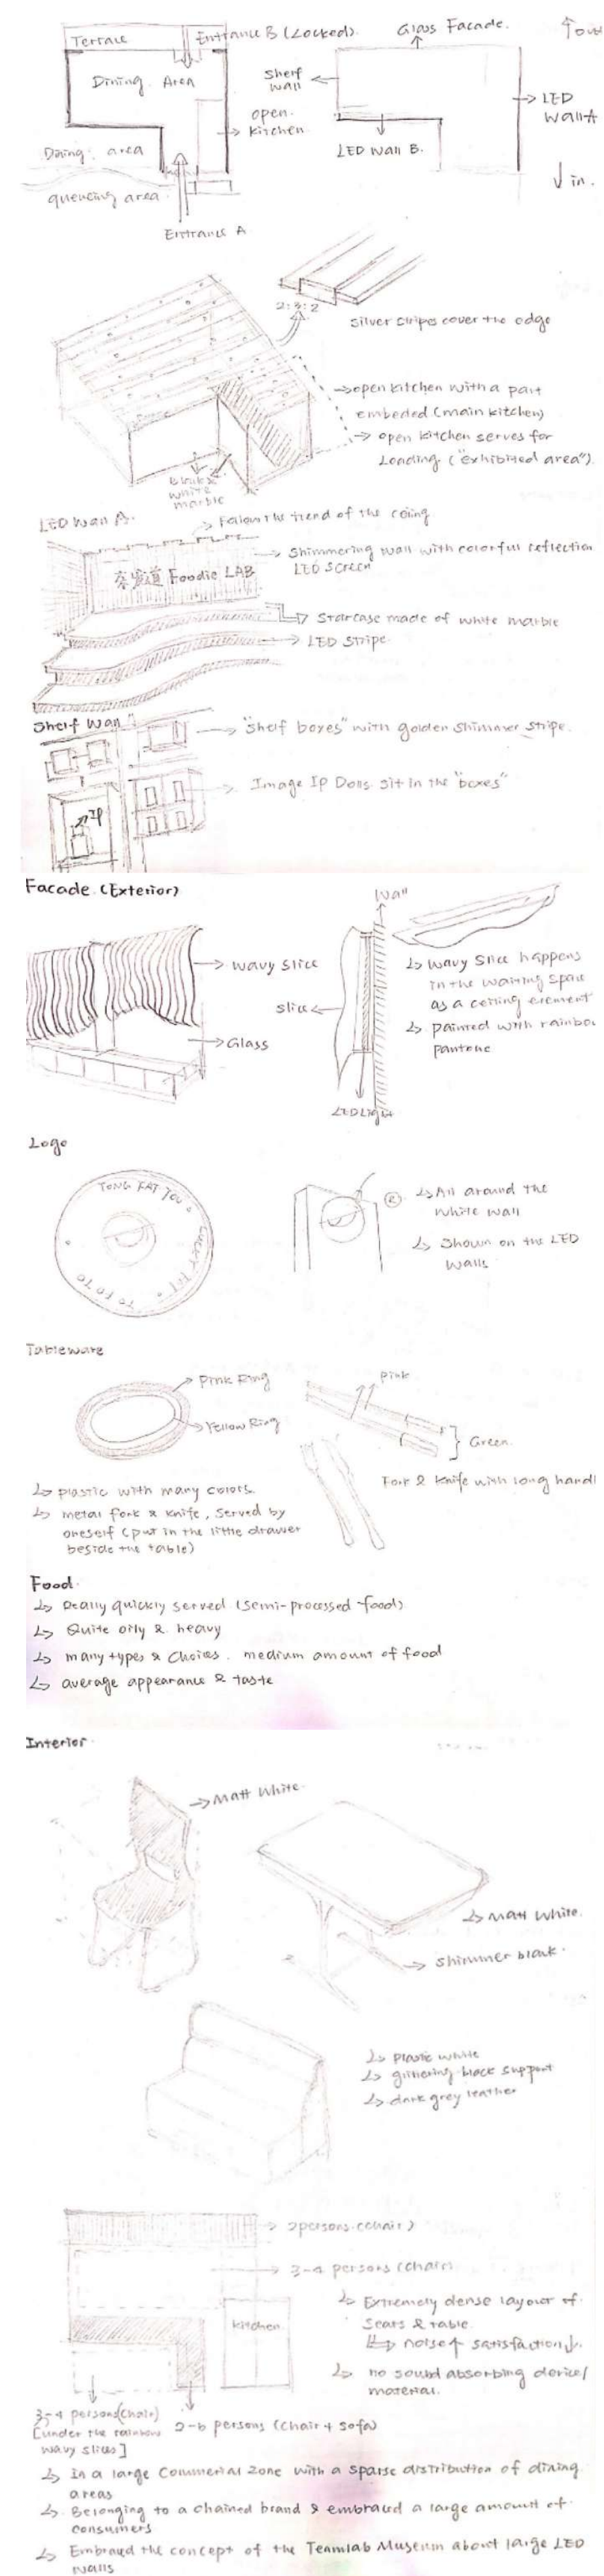 Terrace
Entrance B (Locked)
Dining Area
open kitchen
Dining area
quencing area
Entrance A
Glass Facade.
↑out
Shelf wall
LED Wall A
LED Wall B.
↓ in.
2:3:2
Silver stripes cover the edge
→ open kitchen with a part
embeded (main kitchen)
→ open kitchen serves for
Loading ("exhibited area")
white
marble
LED Wall A.
→ Follow the trend of the ceiling
→ Shimmering wall with colorful reflection
LED Screen
Foodie LAB
→ Staircase made of white marble
→ LED Stripe
Shelf Wall
→ "Shelf boxes" with golden shimmer stripe.
→ Image IP Dolls sit in the "boxes"
IP
Facade (Exterior)
→ wavy slice
→ Glass
Wall
slice
LED Light
↳ wavy slice happens
in the waiting space
as a ceiling element
↳ painted with rainbow
pantone
Logo
TONG FAT YOU
TO FO TO
R
↳ All around the
white wall
↳ Shown on the LED
walls
Tableware
→ Pink Ring
→ Yellow Ring
Pink
Green
Fork & Knife with long handl
↳ plastic with many colors
↳ metal fork & knife, served by
oneself (put in the little drawer
beside the table)
Food.
↳ Really quickly served (semi-processed food)
↳ Quite oily & heavy
↳ many types & choices. medium amount of food
↳ average appearance & taste
Interior
→ Matt White
↳ Matt White.
→ shimmer black.
↳ plastic white
↳ glittering black support
↳ dark grey leather
→ 2persons (chair)
→ 3-4 persons (chair)
kitchen
↳ Extremely dense layout of
seats & table
↳ noise↑ satisfaction↓.
↳ no sound absorbing device/
material.
3-4 persons(chair)
[under the rainbow
wavy slices]
2-6 persons (chair + sofa)
↳ In a large Commerial Zone with a sparse distribution of dining
areas
↳ Belonging to a chained brand & embraced a large amount of
consumers
↳ Embraced the concept of the Teamlab Museum about large LED
walls